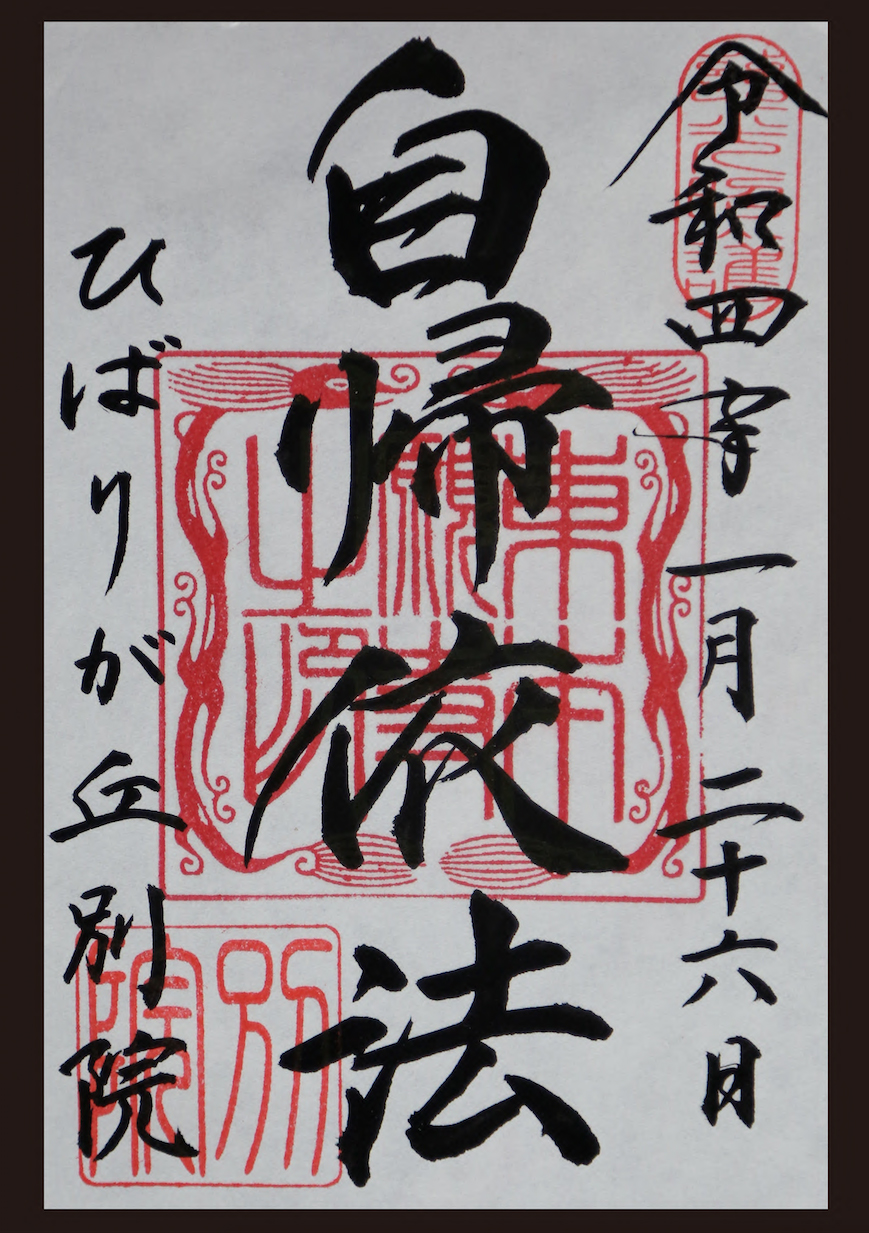 令和四年一月二十六日
自帰依法
ひばりが丘別院
東本
願寺
之印
別
院